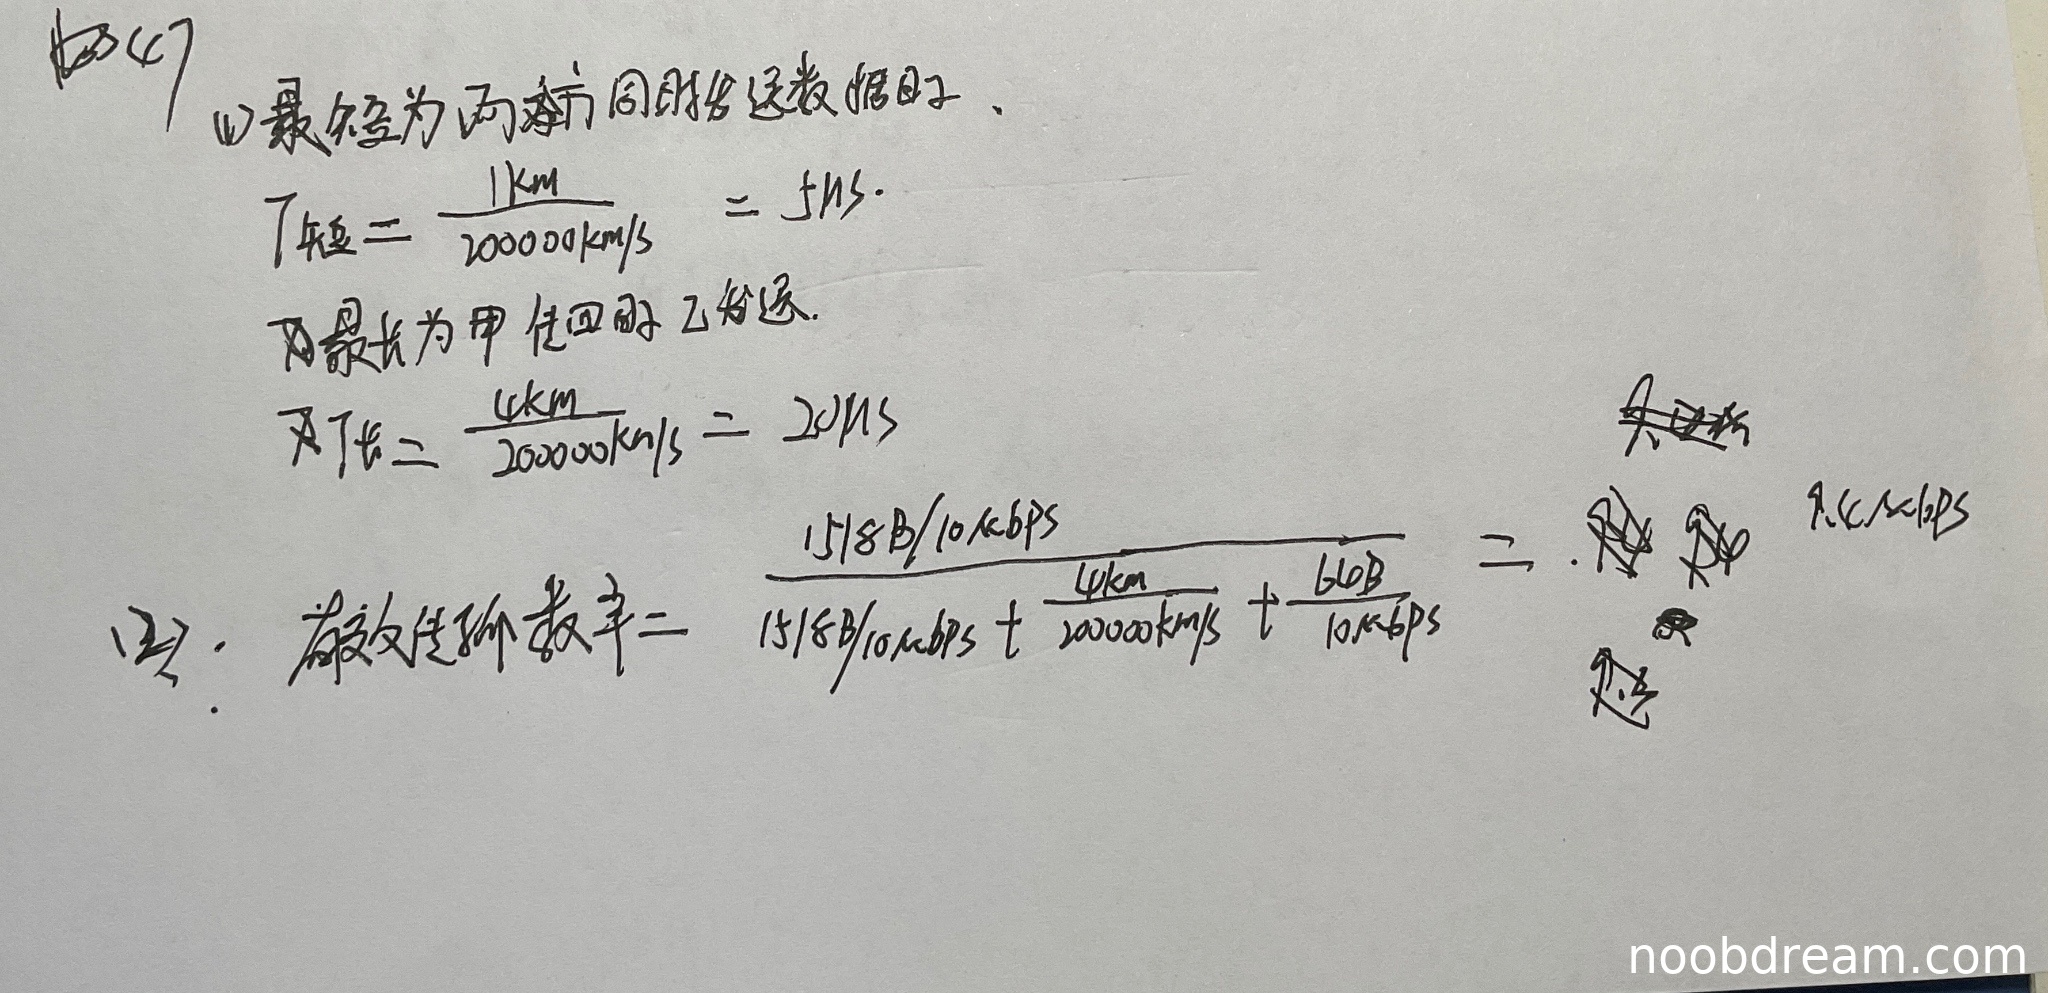 47
(1) 最短为两方同时发送数据时、
T短 = 1km / 200000km/s = 5μs.
最长为甲传回时乙发送.
T长 = 4km / 200000km/s = 20μs
(2): 有效传输数率 = 1518B/10Mbps / (1518B/10Mbps + 4km / 200000km/s + 64B / 10Mbps) = 9.4Mbps
noobdream.com